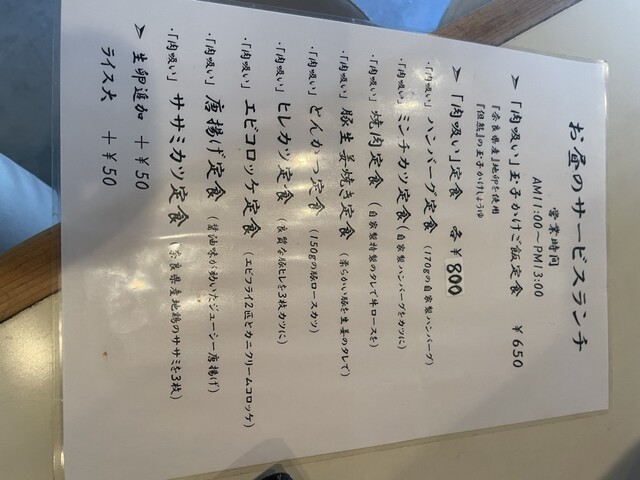 お昼のサービスランチ
営業時間
AM11:00～PM13:00
➢ 「肉吸い」玉子かけご飯定食 ￥650
「奈良県産」地卵を使用
「但熊」の玉子かけしょうゆ
➢ 「肉吸い」定食 各￥800
・「肉吸い」ハンバーグ定食 (170gの自家製ハンバーグ)
・「肉吸い」ミンチカツ定食 (自家製ハンバーグをカツに)
・「肉吸い」焼肉定食 (自家製特製のタレで牛ロースを)
・「肉吸い」豚生姜焼き定食 (柔らかい豚を生姜のタレで)
・「肉吸い」とんかつ定食 (150gの豚ロースカツ)
・「肉吸い」ヒレカツ定食 (良質な豚ヒレを3枚カツに)
・「肉吸い」エビコロッケ定食 (エビフライ2匹とカニクリームコロッケ)
・「肉吸い」唐揚げ定食 (醤油味が効いたジューシー唐揚げ)
・「肉吸い」ササミカツ定食 (奈良県産地鶏のササミを3枚)
➢ 生卵追加 ＋￥50
ライス大 ＋￥50